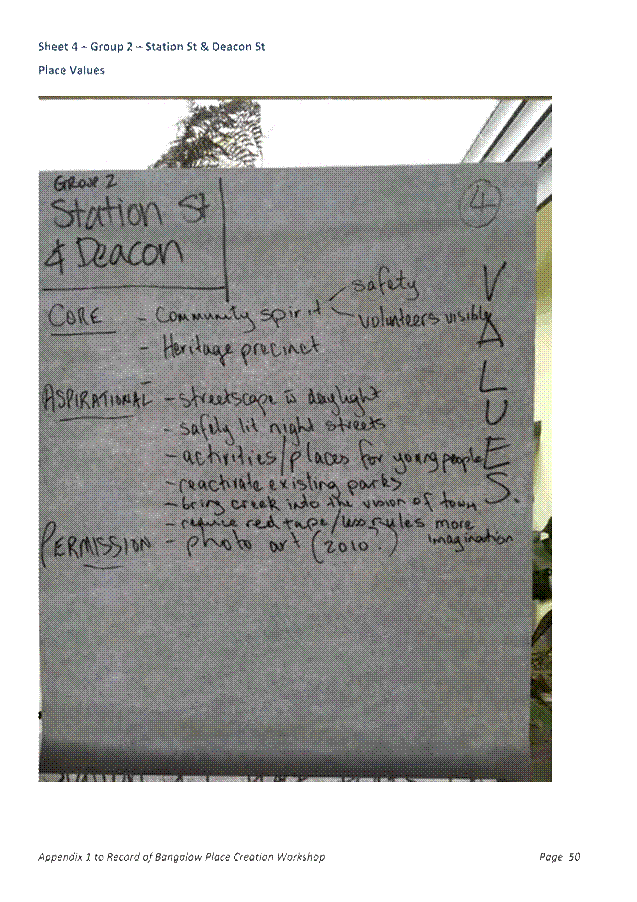 Sheet 4 – Group 2 – Station St & Deacon St
Place Values
GROUP 2
Station St
& Deacon
4
VALUES.
CORE - Community spirit < safety
volunteers visibly
- Heritage precinct
ASPIRATIONAL - streetscape is daylight
- safely lit night streets
- activities/places for young people
- reactivate existing parks
- bring creek into the vision of town
- require red tape/less rules more
imagination
PERMISSION - photo art (2010?)
Appendix 1 to Record of Bangalow Place Creation Workshop
Page 50